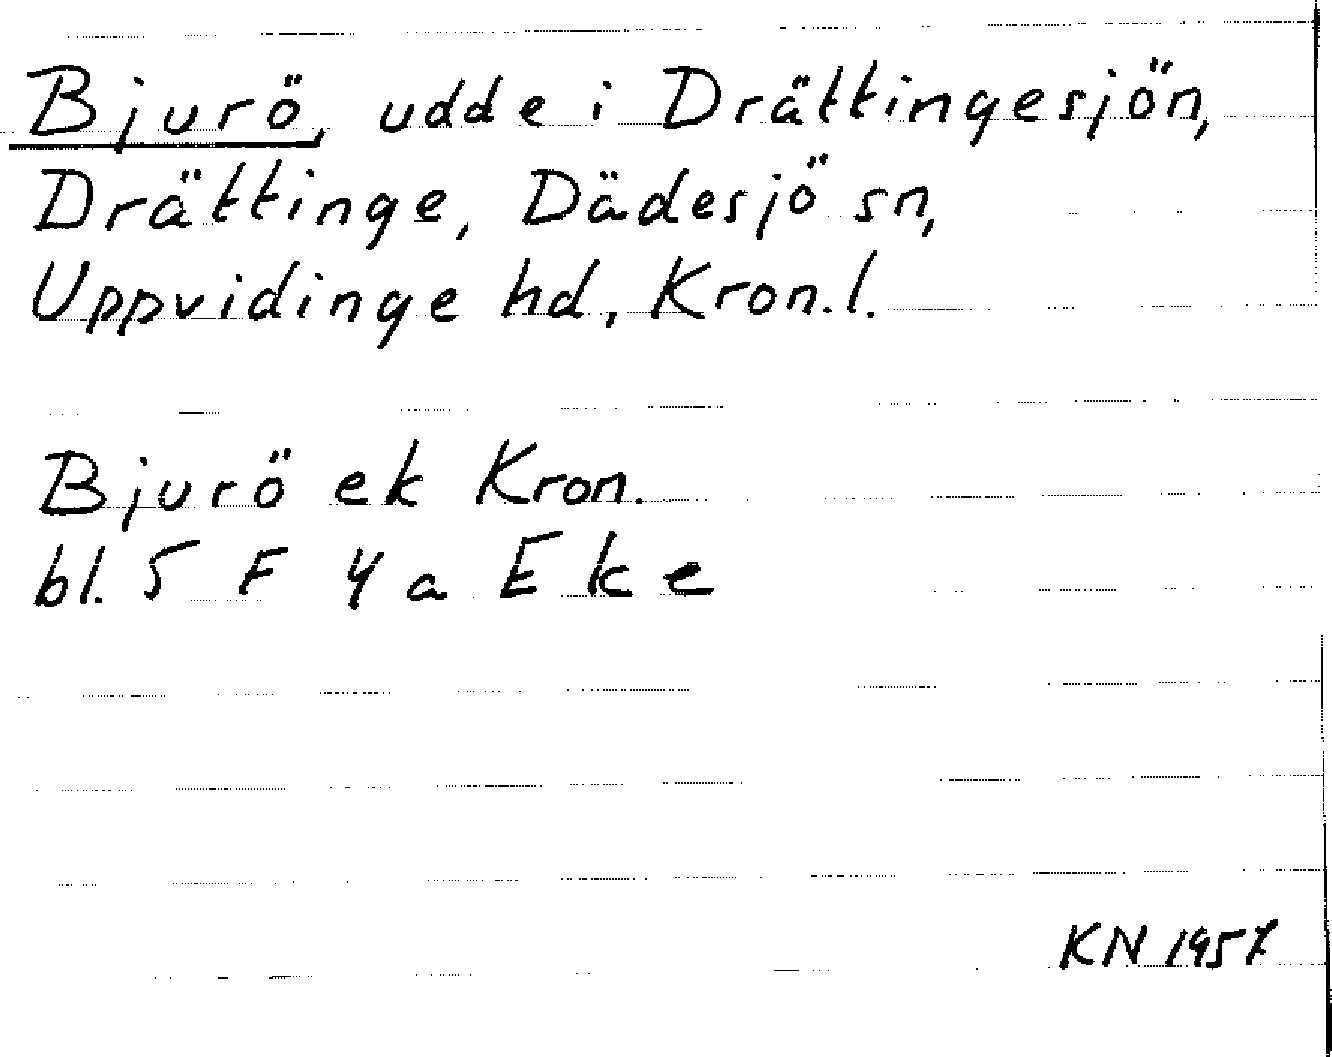 Bjurö, udde i Drättingesjön,
Drättinge, Dädesjö sn,
Uppvidinge hd, Kron. l.
Bjurö ek Kron.
bl. 5 F 4 a Eke
KN 1957